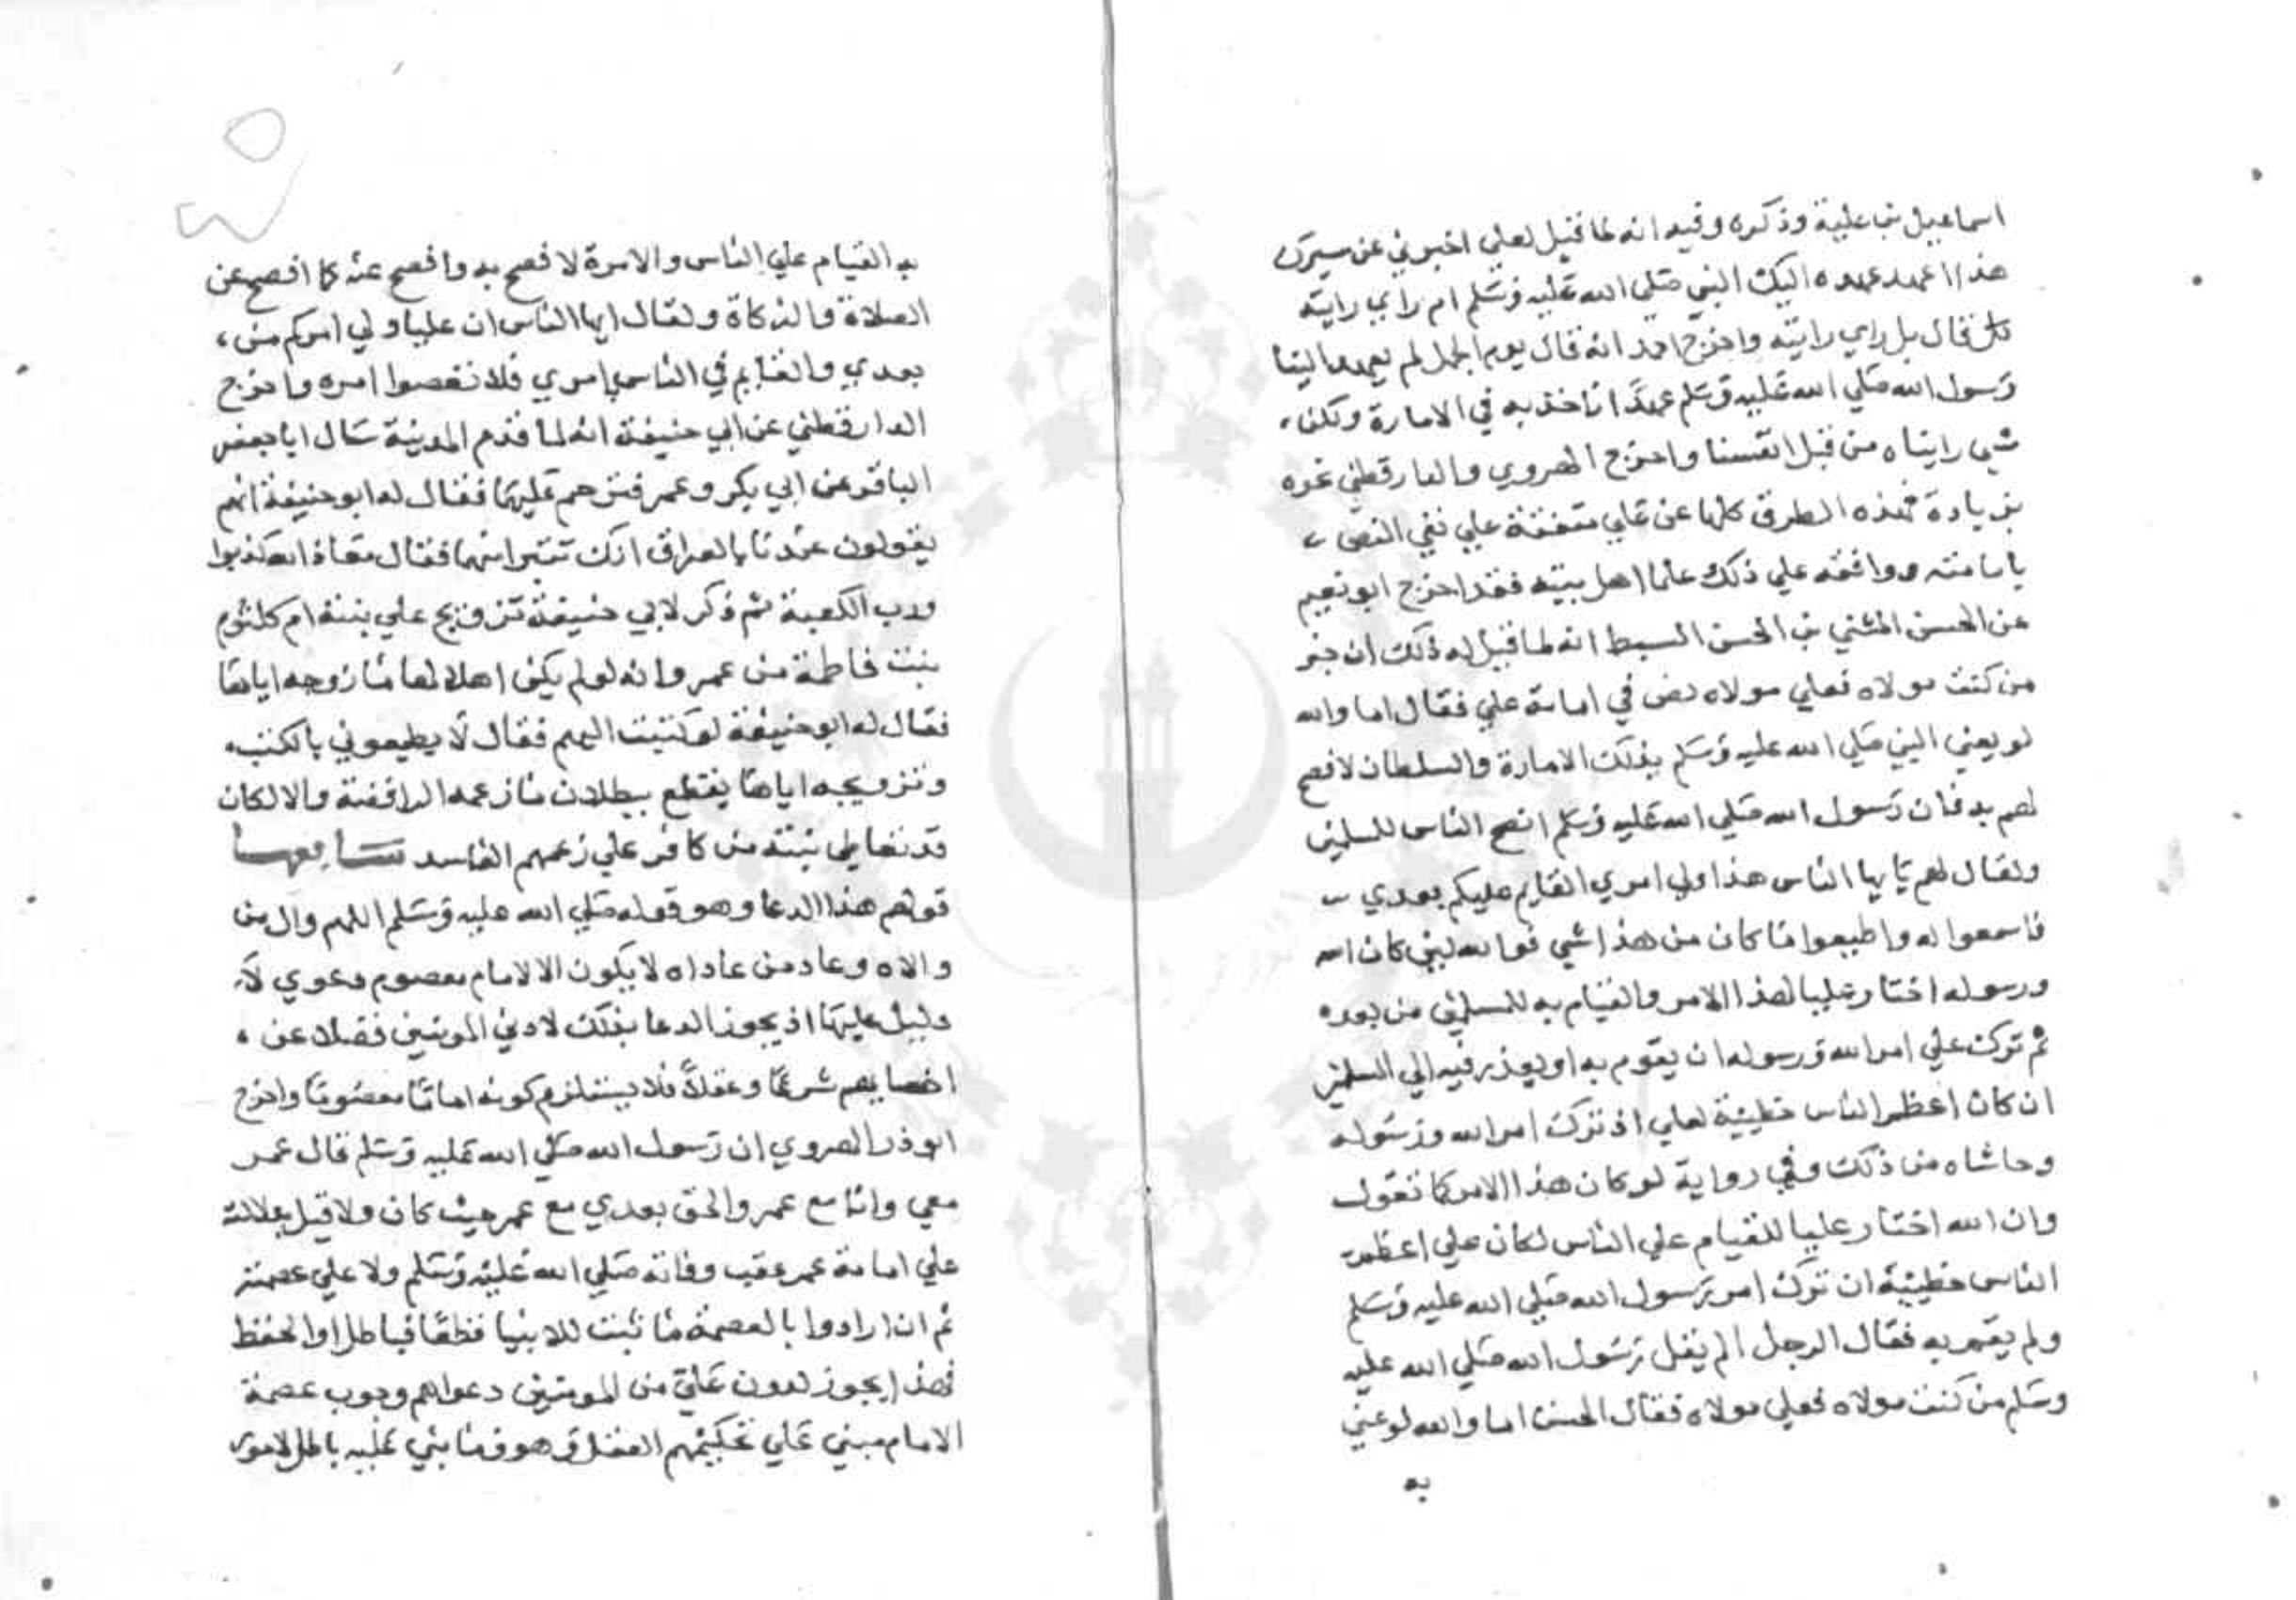 اسماعيل بن علية وذكره وفيه انه لما قيل لعلي اخبرني عن مسيرك
هذا اعهد عهده اليك النبي صلي الله عليه وسلم ام راي رايته
قال بل راي رايته واخرج احمد انه قال يوم الجمل لم يعهد الينا
رسول الله صلي الله عليه وسلم عهدا ناخذ به في الامارة ولكن
شي رايناه من قبل انفسنا واخرج الهروي والدارقطني نحوه
بزيادة فهذه الطرق كلها عن علي متفقة علي نفي النص
بامامته ووافقه علي ذلك علما اهل بيته فقد اخرج ابو نعيم
عن الحسن المثني بن الحسن السبط انه لما قيل له ذلك ان خبر
من كنت مولاه فعلي مولاه نص في امامة علي فقال اما والله
لو يعني النبي صلي الله عليه وسلم بذلك الامارة والسلطان لافصح
لهم به فان رسول الله صلي الله عليه وسلم انصح الناس للمسلمين
ولقال لهم يايها الناس هذا ولي امري القايم عليكم بعدي
فاسمعوا له واطيعوا ما كان من هذا شي فوالله لين كان الله
ورسوله اختار عليا لهذا الامر والقيام به للمسلمين من بعده
ثم ترك علي امر الله ورسوله ان يقوم به او يعذر فيه الي المسلمين
ان كان اعظم الناس خطيئة لعلي اذ ترك امر الله ورسوله
وحاشاه من ذلك وفي رواية لو كان هذا الامر كما تقول
وان الله اختار عليا للقيام علي الناس لكان علي اعظم
الناس خطيئة ان ترك امر رسول الله صلي الله عليه وسلم
ولم يقم به فقال الرجل الم يقل رسول الله صلي الله عليه
وسلم من كنت مولاه فعلي مولاه فقال الحسن اما والله لو عني
به
به القيام علي الناس والامرة لافصح به وافصح عنه كما افصح عن
الصلاة والزكاة ولقال ايها الناس ان عليا ولي امركم من
بعدي والقايم في الناس بامري فلا تعصوا امره واخرج
الدارقطني عن ابي حنيفة انه لما قدم المدينة سال ابا جعفر
الباقر عن ابي بكر وعمر فترحم عليهما فقال له ابو حنيفة انهم
يقولون عندنا بالعراق انك تتبرا منهما فقال معاذ الله كذبوا
ورب الكعبة ثم ذكر لابي حنيفة تزويج علي بنته ام كلثوم
بنت فاطمة من عمر وانه لو لم يكن اهلا لها ما زوجه اياها
فقال له ابو حنيفة لو كتبت اليهم فقال لا يطيعوني بالكتب
وتزويجه اياها يقطع ببطلان ما زعمه الرافضة والا لكان
قد تعاطي بنته من كافر علي زعمهم الفاسد سابعها
قولهم هذا الدعا وهو قوله صلي الله عليه وسلم اللهم وال من
والاه وعاد من عاداه لا يكون الا لامام معصوم دعوي لا
دليل عليها اذ يجوز الدعا بذلك لادني المومنين فضلا عن
اخصايهم شرعا وعقلا فلا يستلزم كونه اماما معصوما واخرج
ابو ذر الهروي ان رسول الله صلي الله عليه وسلم قال عمر
معي وانا مع عمر والحق بعدي مع عمر حيث كان ولا قيل بدلالته
علي امامة عمر عقب وفاته صلي الله عليه وسلم ولا علي عصمته
ثم ان ارادوا بالعصمة ما ثبت للانبيا قطعا فباطل او الحفظ
فهذا يجوز لدون علي من المومنين دعواهم وجوب عصمة
الامام مبني علي تحكيمهم العقل وهو وما بني عليه باطل لامور